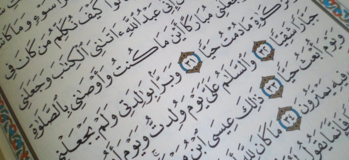 سَوْءٍ وَمَا كَا
قَالُوا۟ كَيْفَ نُكَلِّمُ مَن كَانَ فِي
إِنِّي عَبْدُ ٱللَّهِ ءَاتَىٰنِيَ ٱلْكِتَٰبَ وَجَعَلَنِي
وَجَعَلَنِي مُبَارَكًا أَيْنَ مَا كُنتُ وَأَوْصَٰنِي بِٱلصَّلَوٰةِ
زَّكَوٰةِ مَا دُمْتُ حَيًّا ٣١ وَبَرًّۢا بِوَٰلِدَتِي وَلَمْ يَجْعَلْنِي
جَبَّارًا شَقِيًّا ٣٢ وَٱلسَّلَٰمُ عَلَيَّ يَوْمَ وُلِدتُّ وَيَوْمَ أَ
وَيَوْمَ أُبْعَثُ حَيًّا ٣٣ ذَٰلِكَ عِيسَى ٱبْنُ
فِيهِ يَمْتَرُونَ ٣٤ مَا كَانَ لِلَّهِ